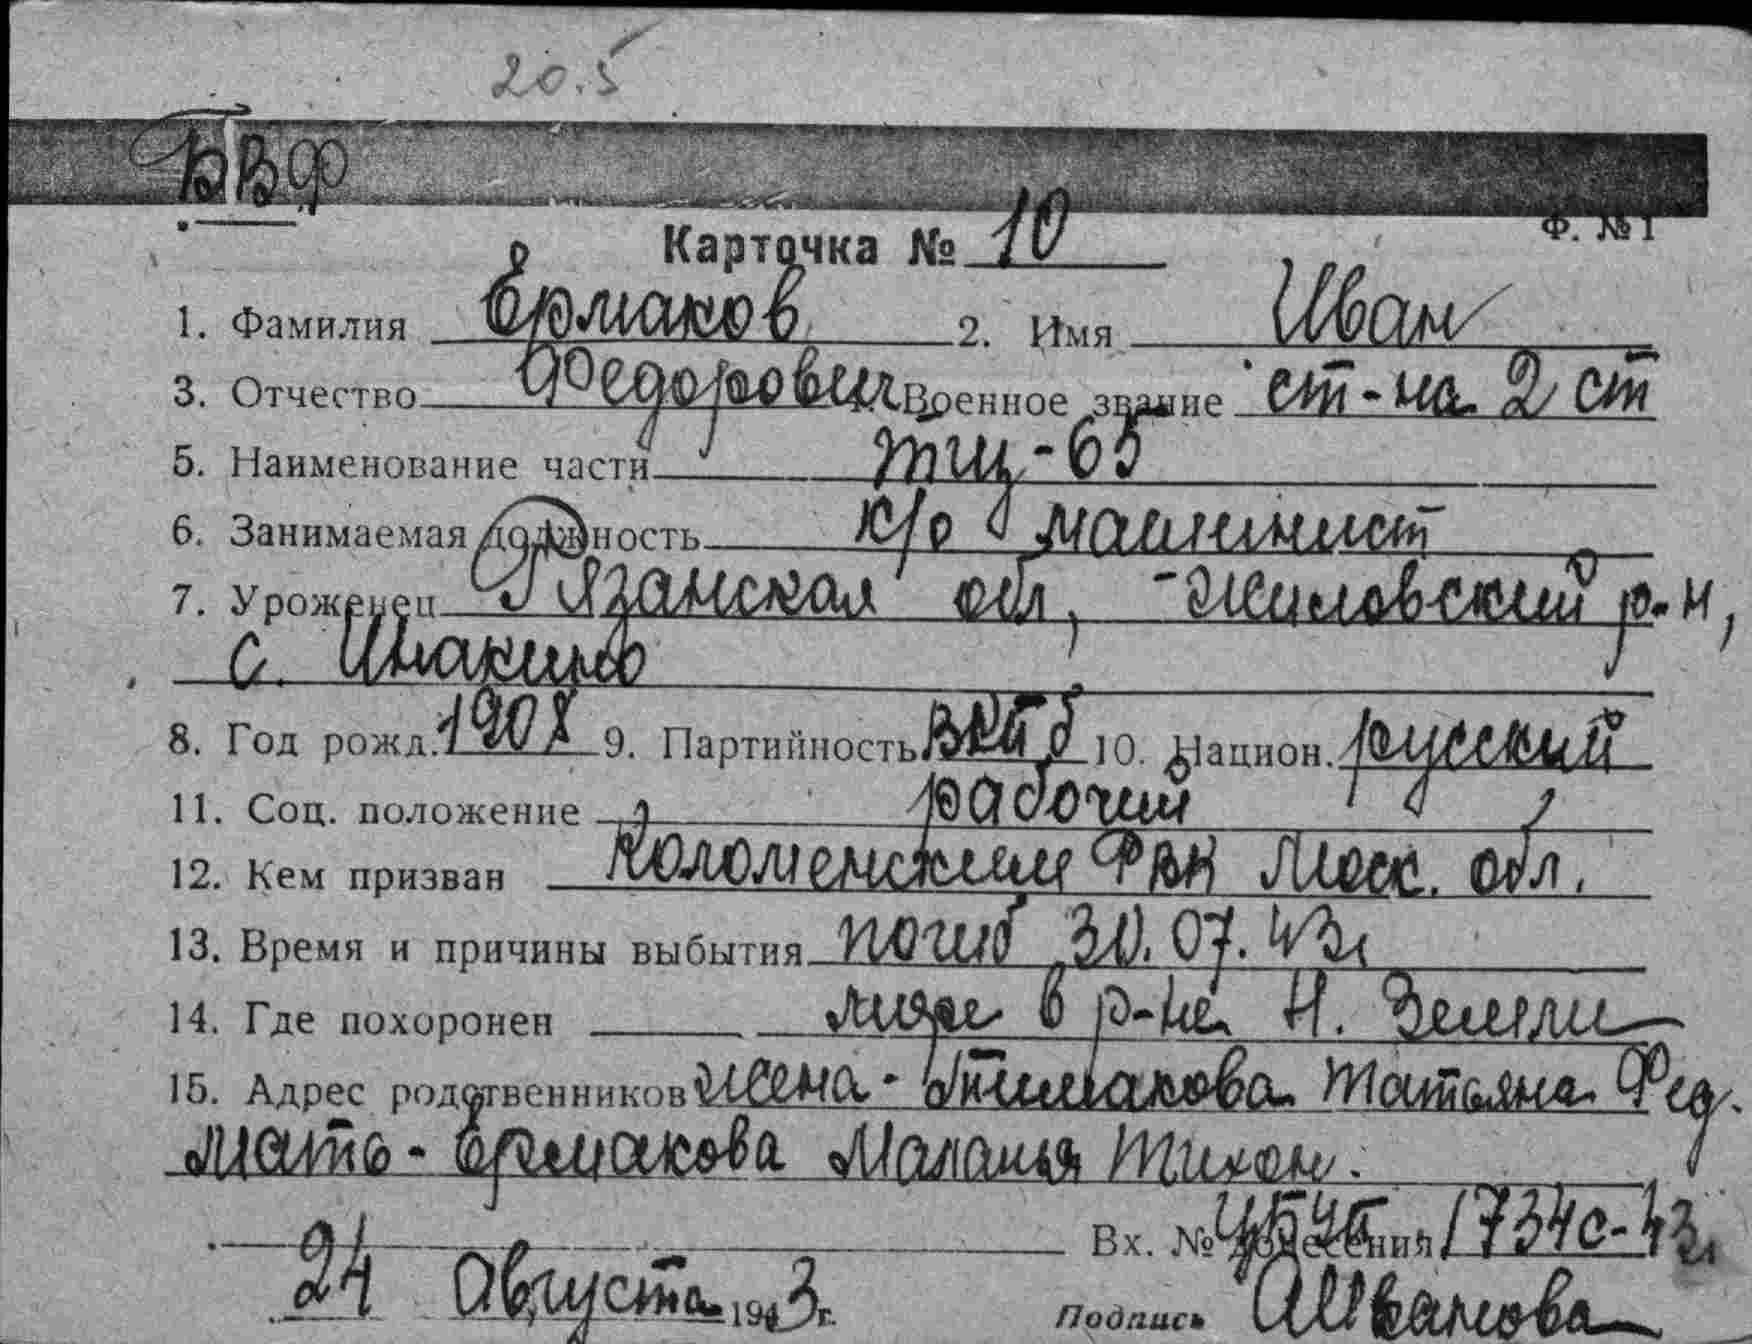 20.5
БВФ
Ф. № 1
Карточка № 10
1. Фамилия Ермаков 2. Имя Иван
3. Отчество Федорович Военное звание ст-на 2 ст
5. Наименование части тщ-65
6. Занимаемая должность к/о машинист
7. Уроженец Рязанская обл, Шиловский р-н,
с. Инакино
8. Год рожд. 1908 9. Партийность ВКПб 10. Национ. русский
11. Соц. положение рабочий
12. Кем призван Коломенским РВК Моск. обл.
13. Время и причины выбытия погиб 30.07.43г
14. Где похоронен море в р-не Н. Земли
15. Адрес родственников жена - Татьяна Фед.
мать - Ермакова Маланья Тихон.
Вх. № донесения 1734с-43г.
24 Августа 1943г. Подпись